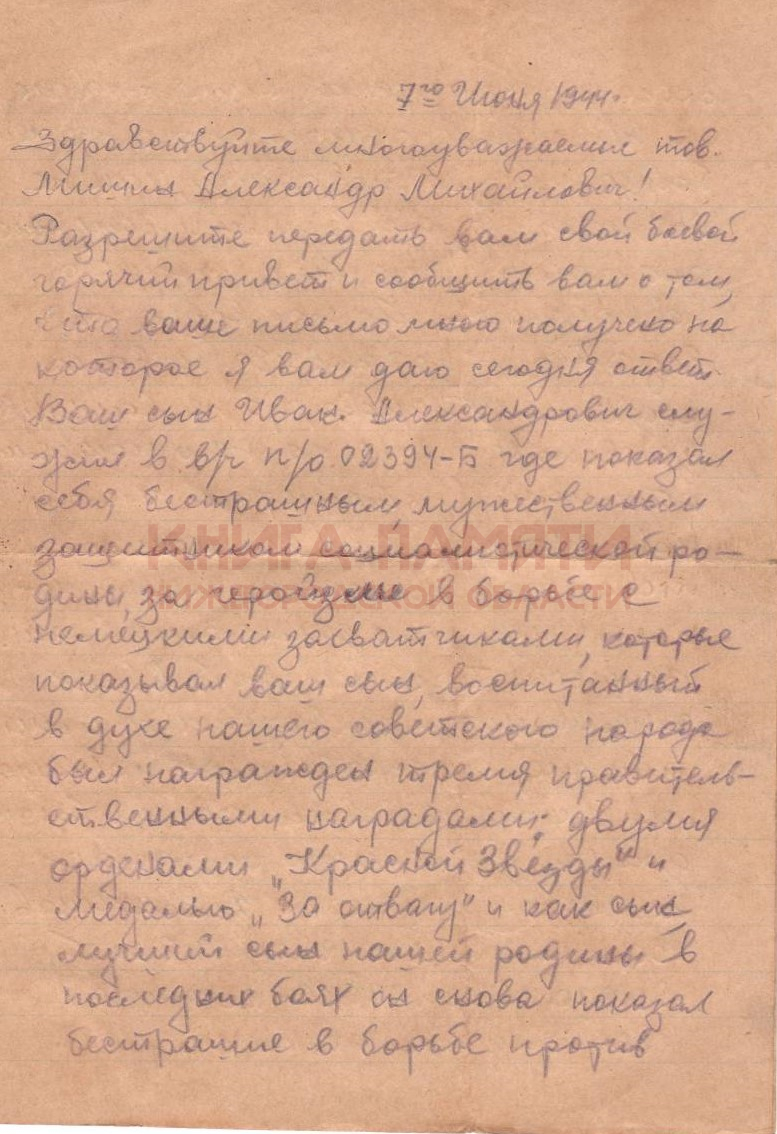 7го Июня 1944г.
Здравствуйте многоуважаемые тов.
Мишин Александр Михайлович!
Разрешите передать вам свой боевой
горячий привет и сообщить вам о том,
что ваше письмо мною получено на
которое я вам даю сегодня ответ.
Ваш сын Иван. Александрович слу-
жил в в/ч п/о 02394-Б где показал
себя бестрашным, мужественным
защитником социалистической ро-
дины, за геройзме в борьбе с
немецкими захватчиками, которые
показывал ваш сын, воспитанный
в духе нашего советского народа
был награжден тремя правитель-
ственными наградами: двумя
орденами „Красной Звезды" и
медалью „За отвагу" и как сын,
лучший сын нашей родины в
последних боях он снова показал
бестрашие в борьбе против
КНИГА ПАМЯТИ
НИЖЕГОРОДСКОЙ ОБЛАСТИ